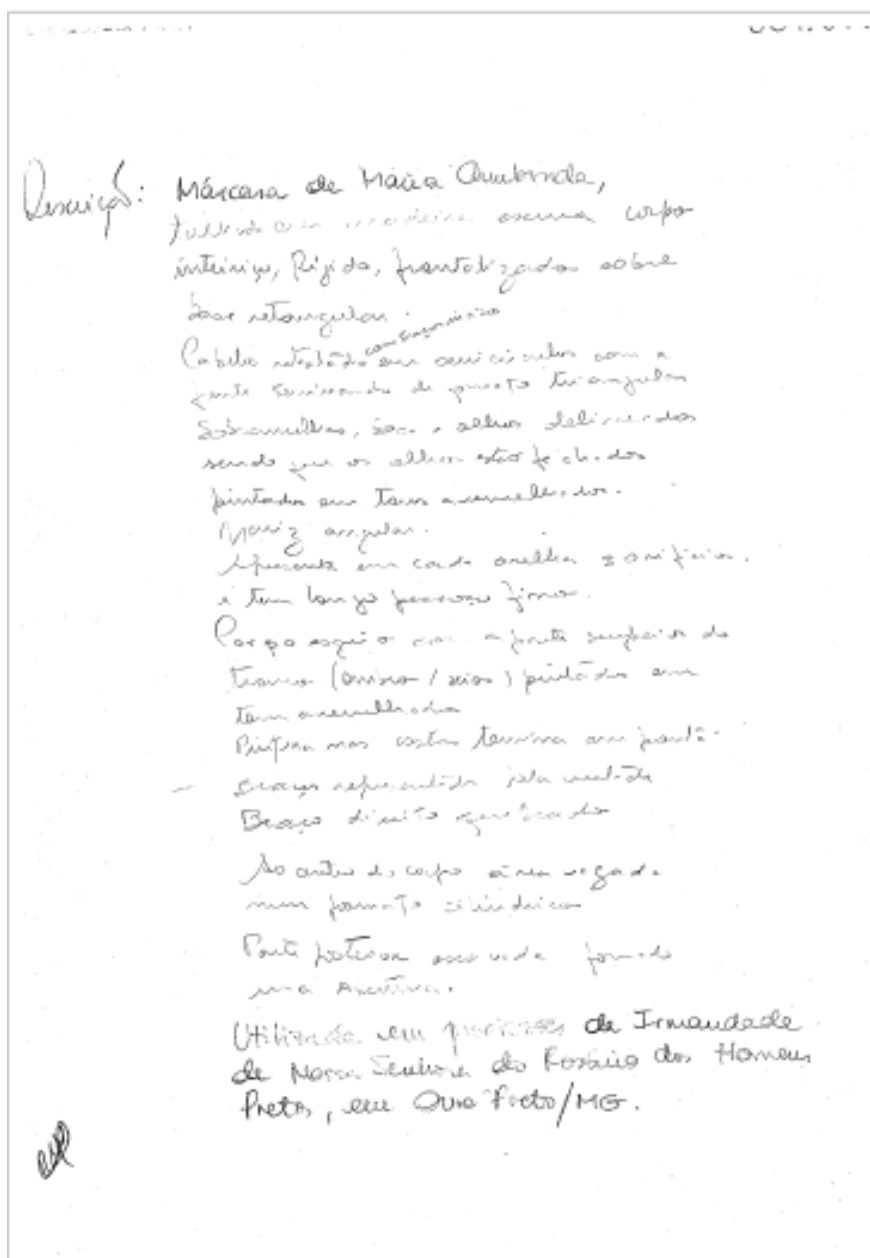 Descrição: Máscara de Maria Cambinda,
madeira escura corpo
inteiriço, Rígido, frontalizado sobre
base retangular.
Cabelo em semicírculos com a
parte terminando de formato triangular
Sobrancelhas, boca e olhos delineados
sendo que os olhos estão fechados
pintados em tons avermelhados.
Nariz angular.
Apresenta em cada orelha orifícios.
e tem longo pescoço fino.
Corpo esguio com a parte superior do
tronco (/ seios) pintados em
tom avermelhado
Pintura nas costas termina em
Braços representados pela metade
Braço direito quebrado
do corpo
num formato cilíndrico
Parte posterior escavada formando
uma
Utilizada em de Irmandade
de Nossa Senhora do Rosário dos Homens
Pretos, em Ouro Preto/MG.